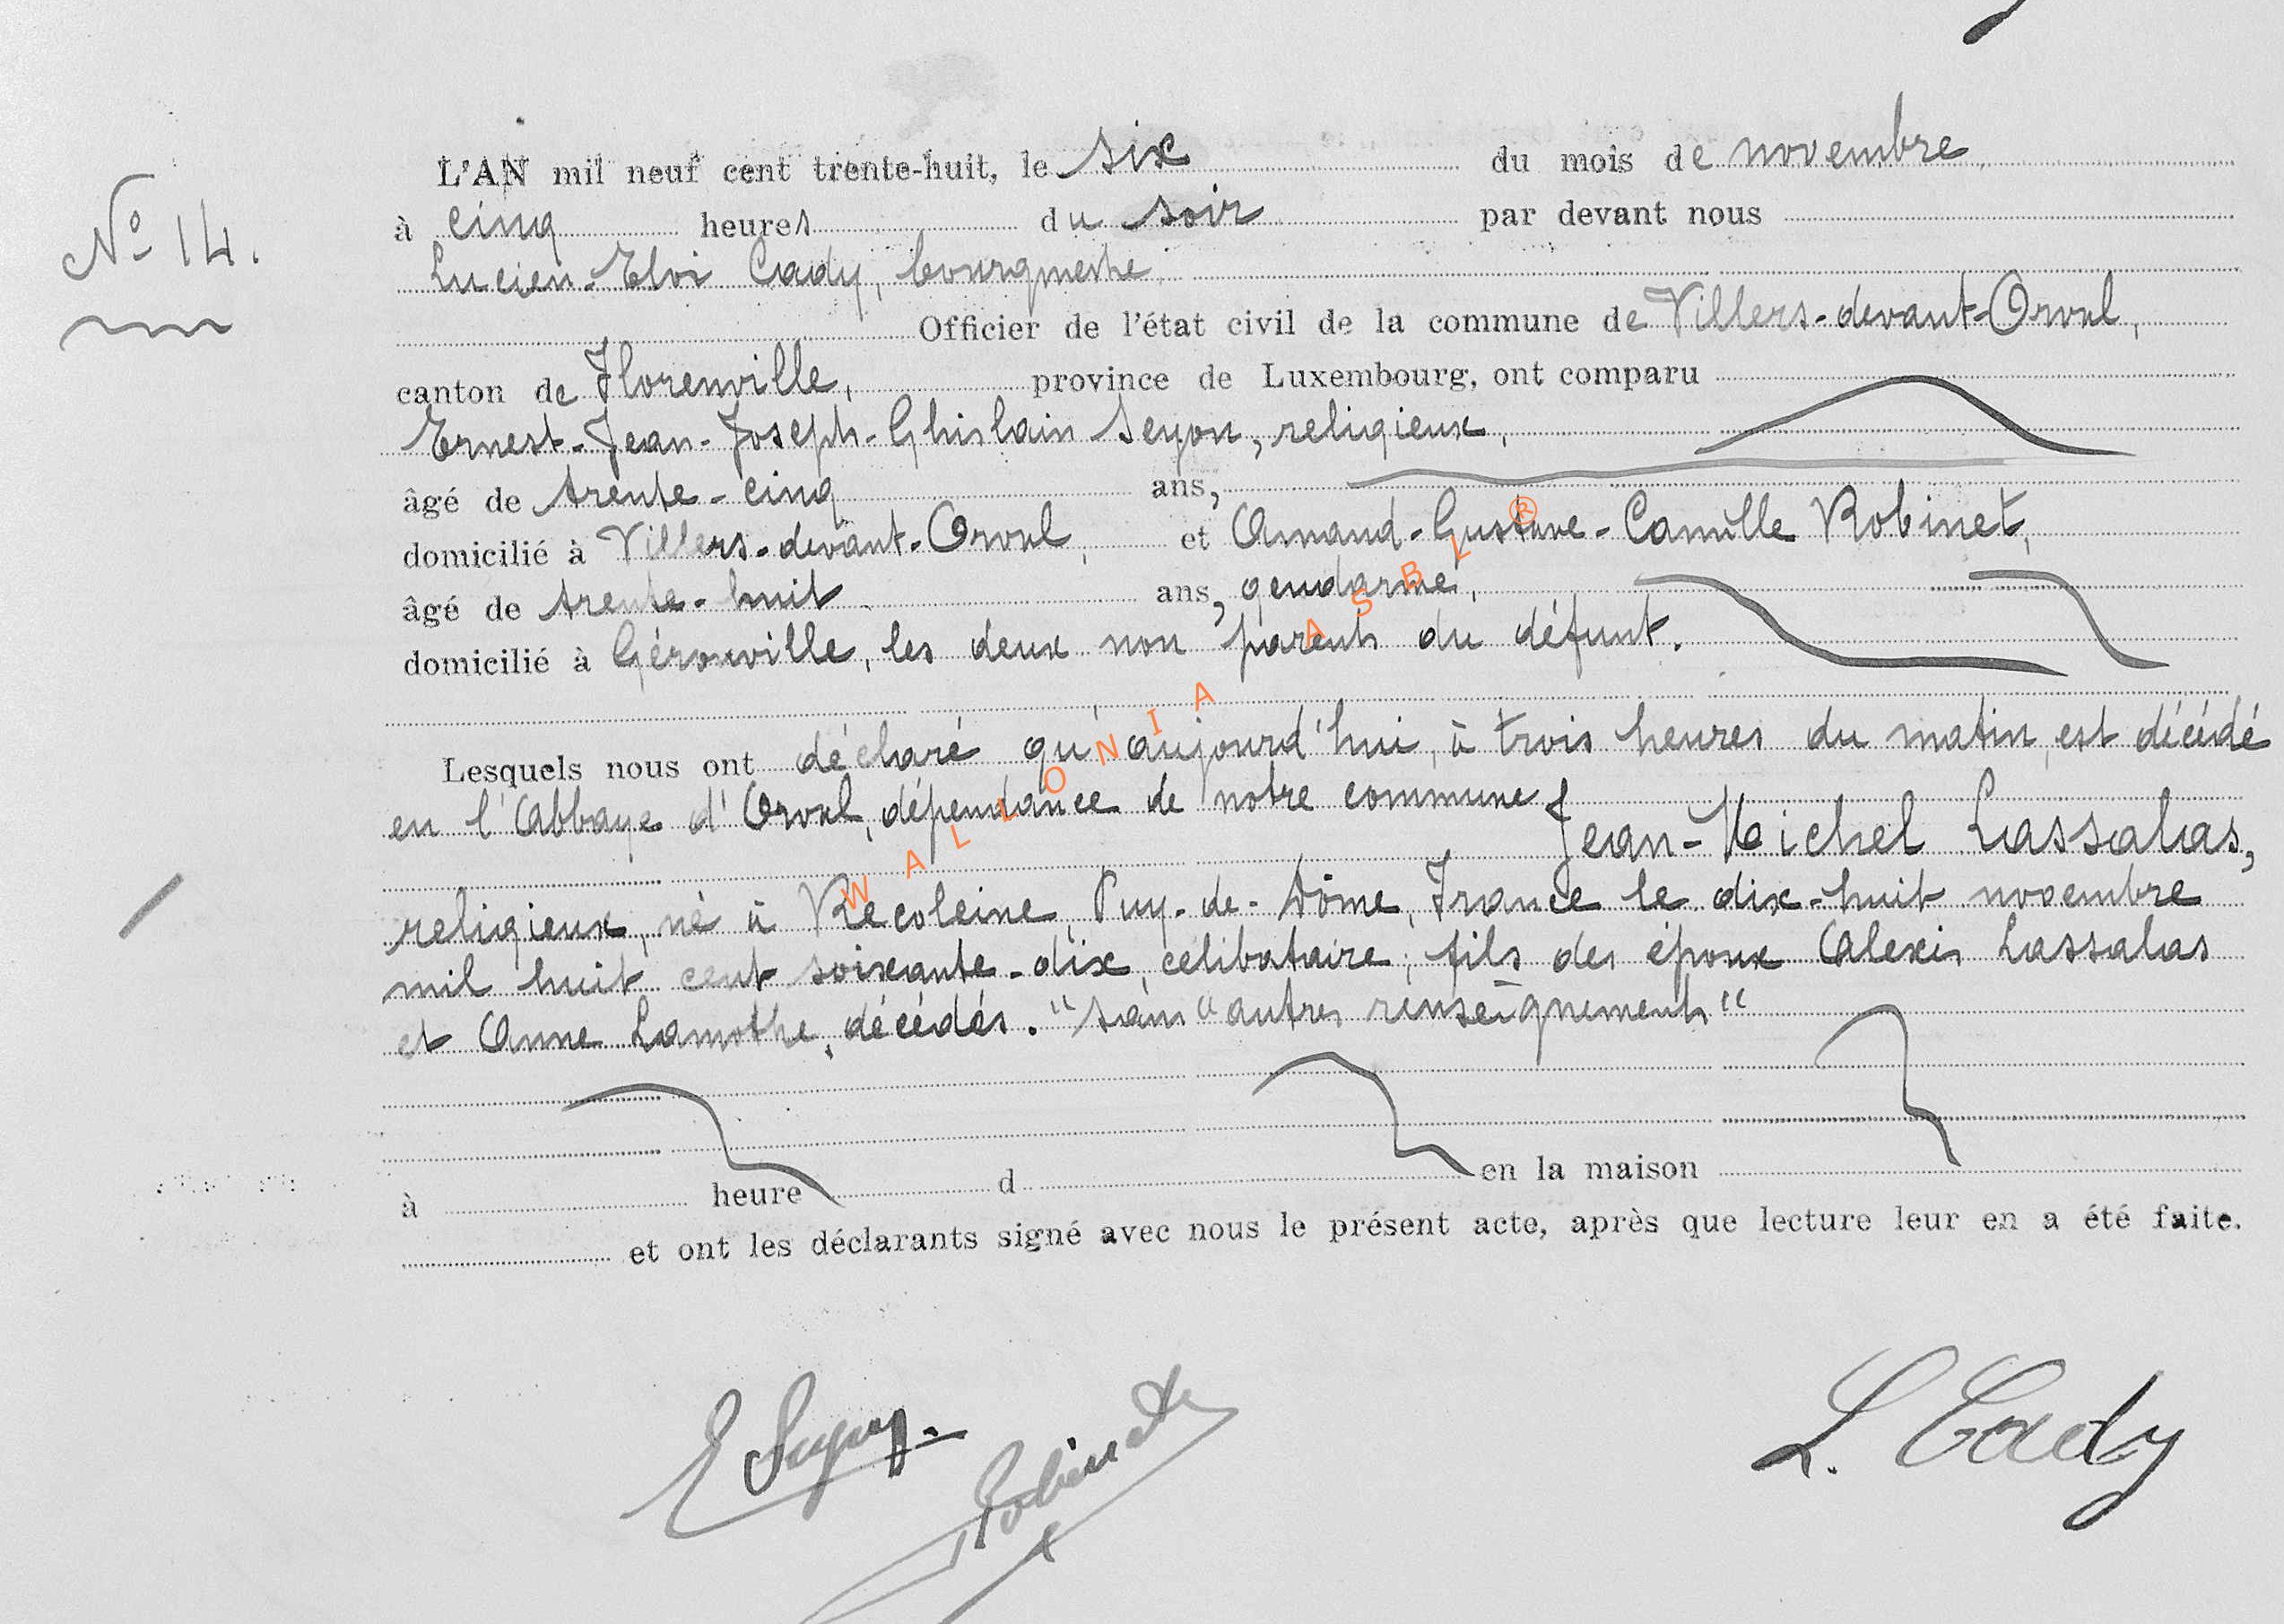 L'AN mil neuf cent trente-huit, le six du mois de novembre
No 14.
à cinq heures du soir par devant nous
Lucien-Eloi Cady, bourgmestre
Officier de l'état civil de la commune de Villers-devant-Orval,
canton de Florenville, province de Luxembourg, ont comparu
Ernest-Jean-Joseph-Ghislain Seyon, religieux,
âgé de trente-cinq ans,
domicilié à Villers-devant-Orval, et Amand-Gustave-Camille Robinet,
âgé de trente-huit ans, gendarme,
domicilié à Gérouville, les deux non parents du défunt.
Lesquels nous ont déclaré qu'aujourd'hui, à trois heures du matin, est décédé
en l'Abbaye d'Orval, dépendance de notre commune
Jean-Michel Lassalas,
religieux, né à Recoleine, Puy-de-Dôme, France le dix-huit novembre
mil huit cent soixante-dix, célibataire, fils des époux Alexis Lassalas
et Anne Lamothe, décédés. "sans "autres renseignements"
à heure d en la maison
et ont les déclarants signé avec nous le présent acte, après que lecture leur en a été faite.
E Seyon
Robinet
L. Cady
WALLONIA ASBL ®